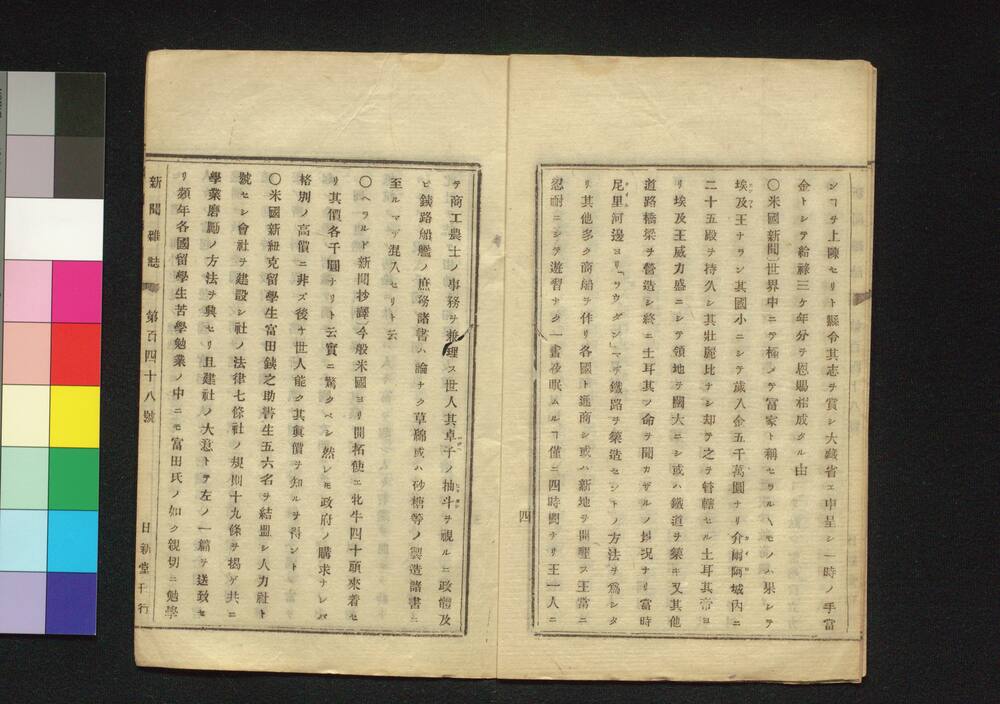 ンヿヲ上陳セリト縣令其志ヲ賞シ大藏省エ申呈シ一時ノ手當
金トシテ給祿三ケ年分ヲ恩賜相成タル由
〇米國新聞ニ世界中ニテ極メテ富家ト稱セラルヽモノハ果シテ
埃及王ナラン其國小ニシテ歲入金五千萬圓ナリ介爾阿城內ニ
二十五殿ヲ持久シ其壯麗比ナシ却テ之ヲ管轄セル土耳其帝ヨ
リ埃及王威力盛ニシテ領地ヲ國大ニシ或ハ鐵道ヲ築キ又其他
道路橋梁ヲ營造シ終ニ土耳其ノ命ヲ聞カザルノ塲況ナリ當時
尼里河邊ヨリ「ソウダン」マデ鐵路ヲ築造セントノ方法ヲ爲シタ
リ其他多ク商船ヲ作リ各國ト通商シ或ハ新地ヲ開墾ス王當ニ
忍耐ニシテ遊習ナク一晝夜眠ムルヿ僅ニ四時間ナリ王一人ニ
四
テ商工農士ノ事務ヲ兼理ス世人其卓子ノ抽斗ヲ視ルニ政體及
ビ鐵路船艦ノ庶務諸書ハ論ナク草綿或ハ砂糖等ノ製造諸書ニ
至ルマデ混入セリト云
〇ヘラルド新聞抄譯ニ今般米國ヨリ開拓使エ牝牛四十頭來着セ
リ其價各千圓ナリト云實ニ驚クベシ然レモ政府ノ購求ナレバ
格別ノ高價ニ非ズ後ケ世人能ク其眞價ヲ知ルヲ得ント
〇米國新紐克留學生富田鐵之助書生五六名ヲ結盟シ人力社ト
號セシ會社ヲ建設シ社ノ法律七條社ノ規則十九條ヲ揭ゲ共ニ
學業磨勵ノ方法ヲ興セリ且建社ノ大意トヲ左ノ一篇ヲ送致セ
リ頻年各國留學生苦學勉業ノ中ニモ富田氏ノ如ク親切ニ勉學
新聞雜誌 第百四十八號 日新堂刊行